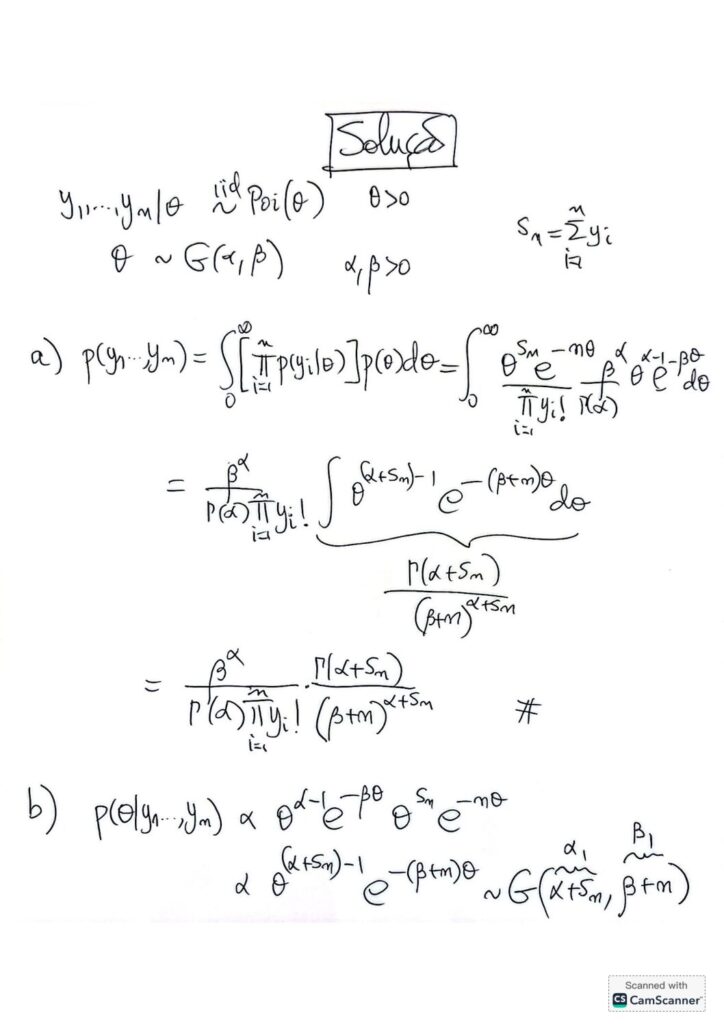 Solução
y₁,...,yₙ|θ iid~ Poi(θ) θ>0
Sₙ = Σᵢ₌₁ⁿ yᵢ
θ ~ G(α,β) α,β>0
a) p(y₁...,yₙ) = ∫₀^∞ [∏ᵢ₌₁ⁿ p(yᵢ|θ)] p(θ)dθ = ∫₀^∞ (θ^(Sₙ) e^(-nθ))/(∏ᵢ₌₁ⁿ yᵢ!) β^α/Γ(α) θ^(α-1) e^(-βθ) dθ
= β^α/(Γ(α) ∏ᵢ₌₁ⁿ yᵢ!) ∫ θ^((α+Sₙ)-1) e^(-(β+n)θ) dθ
Γ(α+Sₙ)/(β+n)^(α+Sₙ)
= β^α/(Γ(α) ∏ᵢ₌₁ⁿ yᵢ!) · Γ(α+Sₙ)/(β+n)^(α+Sₙ) #
b) p(θ|y₁...,yₙ) ∝ θ^(α-1) e^(-βθ) θ^(Sₙ) e^(-nθ)
α₁ β₁
∝ θ^((α+Sₙ)-1) e^(-(β+n)θ) ~ G(α+Sₙ, β+n)
Scanned with
CS CamScanner